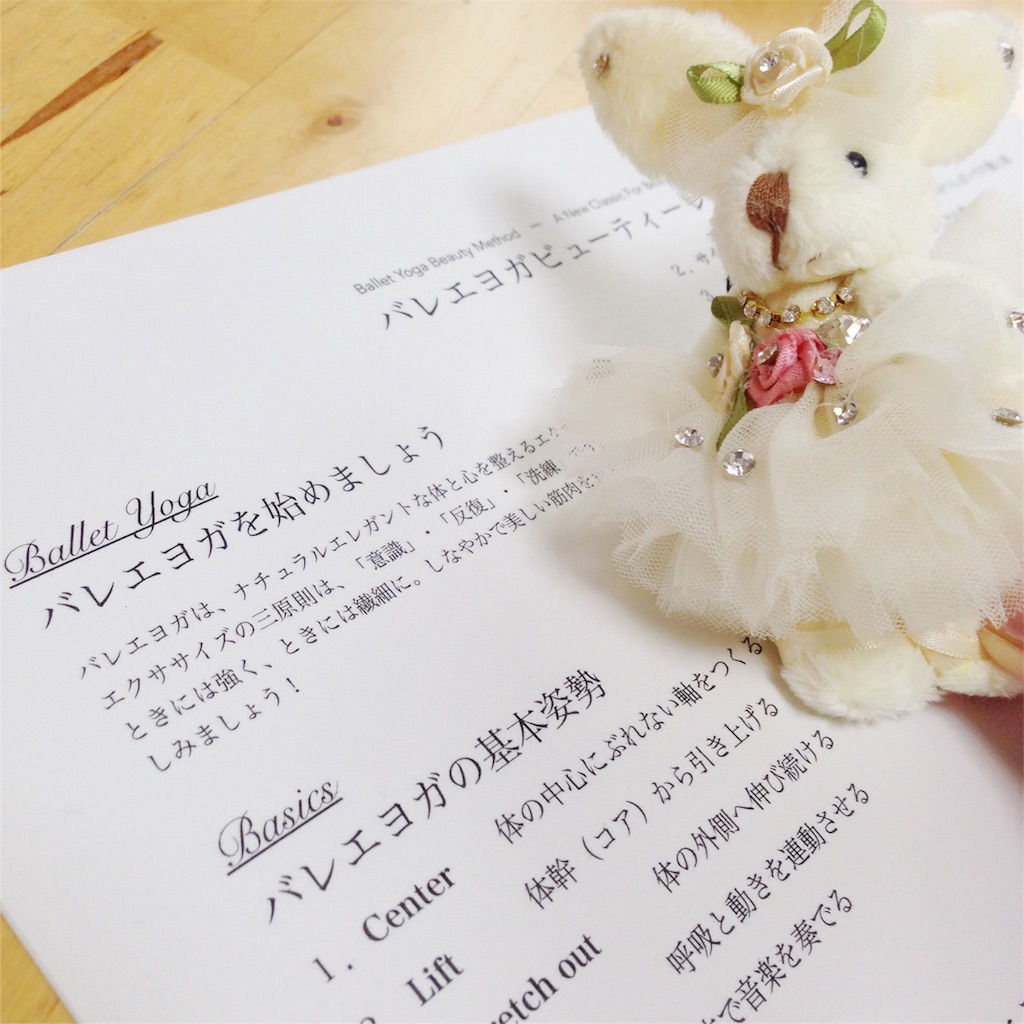 Ballet Yoga Beauty Method – A New Classic For
バレエヨガビューティー
2.
3
Ballet Yoga
バレエヨガを始めましょう
バレエヨガは、ナチュラルエレガントな体と心を整えるエク
エクササイズの三原則は、「意識」・「反復」・「洗練
ときには強く、ときには繊細に。しなやかで美しい筋肉を
しみましょう！
Basics
バレエヨガの基本姿勢
1. Center 体の中心にぶれない軸をつくる
Lift 体幹（コア）から引き上げる
etch out 体の外側へ伸び続ける
呼吸と動きを連動させる
で音楽を奏でる